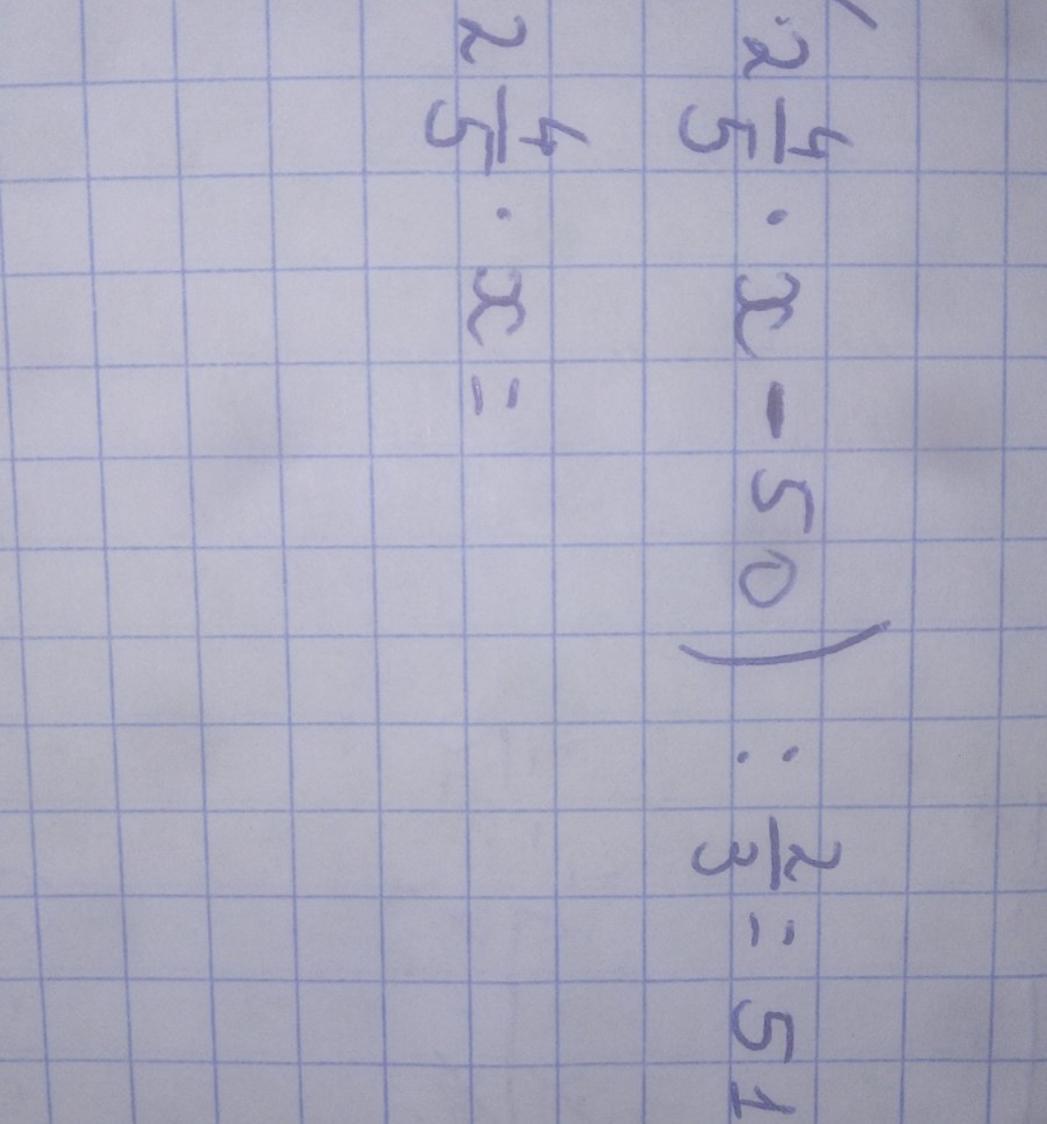 (2 4/5 · x - 50) : 2/3 = 51
2 4/5 · x =